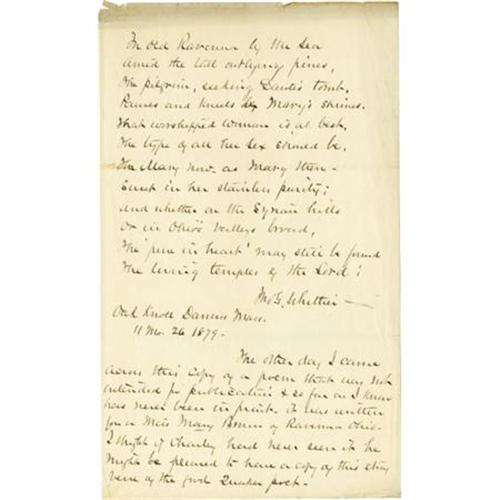 In old Ravenna by the Sea
Amid the tall outlying pines,
The pilgrim, seeking Dante's tomb,
Pauses and kneels by Mary's shrines.
That worshipped woman is, at best,
The type of all her sex should be,
The Mary now, as Mary then -
in her stainless purity;
and whether on the Syrian hills
Or in Ohio's valleys broad,
The 'pure in heart' may still be found
The living temples of the Lord!
Jno G. Whittier —
Oak Knoll Danvers Mass.
11 Mo. 26 1879.
The other day I came
across this copy of a poem that was not
intended for publication & so far as I know
has never been in print. it was written
for a Miss Mary of Ravenna Ohio.
I thought if Charley had never seen it he
might be pleased to have a copy of this
verse of the good Quaker poet.